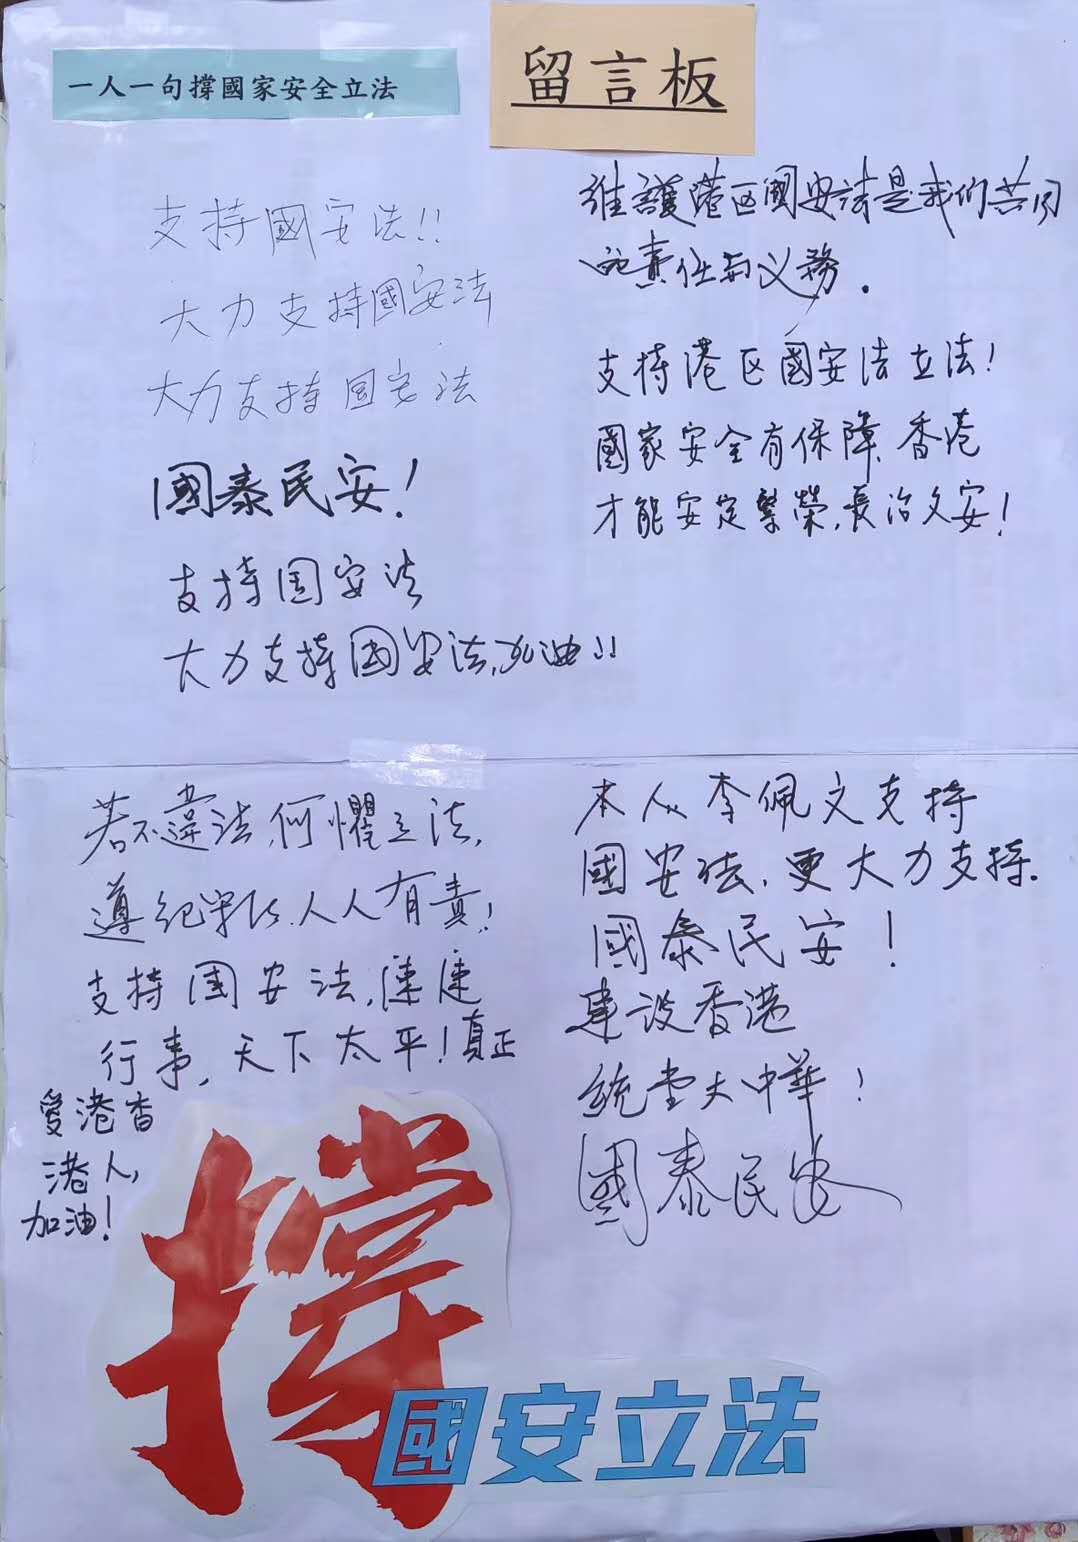 一人一句撐國家安全立法
留言板
支持國安法!!
大力支持國安法
大力支持国安法
國泰民安!
支持国安法
大力支持國安法,加油!!
維護港区國安法是我们共同
的責任与义務.
支持港区國安法立法!
國家安全有保障,香港
才能安定繁榮,長治久安!
若不違法,何懼立法,
遵纪守法.人人有責!
支持国安法,速速
行事,天下太平!真正
愛港香
港人,
加油!
本人李佩文支持
國安法,更大力支持.
國泰民安!
建设香港
統壹大中華!
國泰民安
撐
國安立法